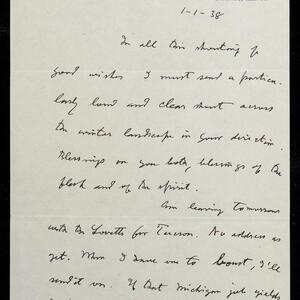 1-1-38
In all this shouting of
good wishes I must send a particu-
larly loud and clear shout across
the winter landscape in your direction.
Blessings on you both, blessings of the
flesh and of the spirit.
Am leaving tomorrow
with the Lovetts for Tucson. No address as
yet. When I have one to boast, I'll
send it on. If that Michigan job yields